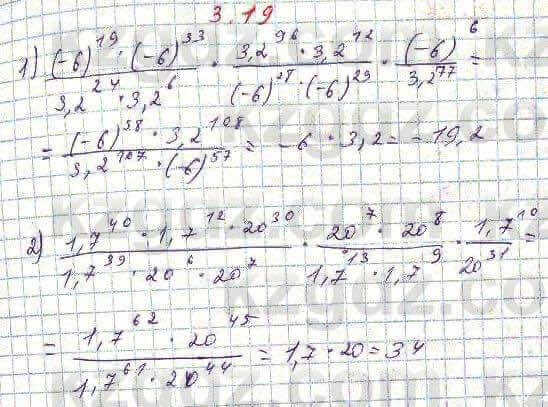 3.19
1) (-6)^19 · (-6)^33 / 3,2^24 · 3,2^6 · 3,2^96 · 3,2^12 / (-6)^28 · (-6)^29 · (-6)^6 / 3,2^77 =
= (-6)^58 · 3,2^108 / 3,2^107 · (-6)^57 = -6 · 3,2 = -19,2
2) 1,7^40 · 1,7^12 · 20^30 / 1,7^39 · 20^6 · 20^7 · 20^7 · 20^8 / 1,7^13 · 1,7^9 · 1,7^10 / 20^31 =
= 1,7^62 · 20^45 / 1,7^61 · 20^44 = 1,7 · 20 = 34